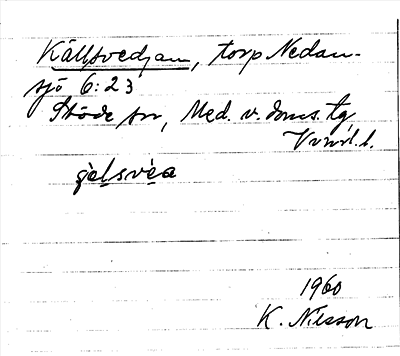 Källsvedjan, torp Nedan-
sjö 6:23
Stöde sn, Med. v. doms. tg,
Vnrl. l.
ġèlsvèa
1960
K. Nilsson